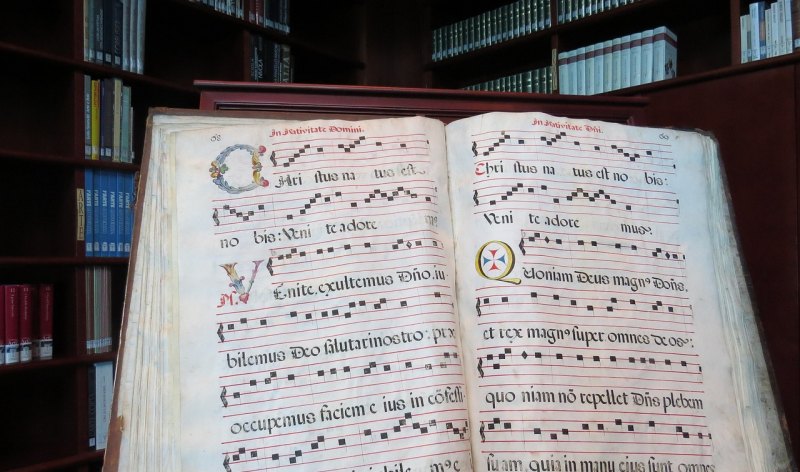 58
In Nativitate Domini.
CHri stus na tus est
no bis: Veni te adore mꝰ.
Ps.
VEnite, exultemus Dño, iu
bilemus Deo salutari nostro: præ
occupemus faciem e ius in cõfessi
In Nativitate Dñi.
Chri stus na tus est no bis:
Veni te adore musꝰ.
QVoniam Deus magnꝰ Dons,
et rex magnꝰ super omnes deos:
quo niam nõ repellet Dñs plebem
suam, quia in manu ejus sunt omnes